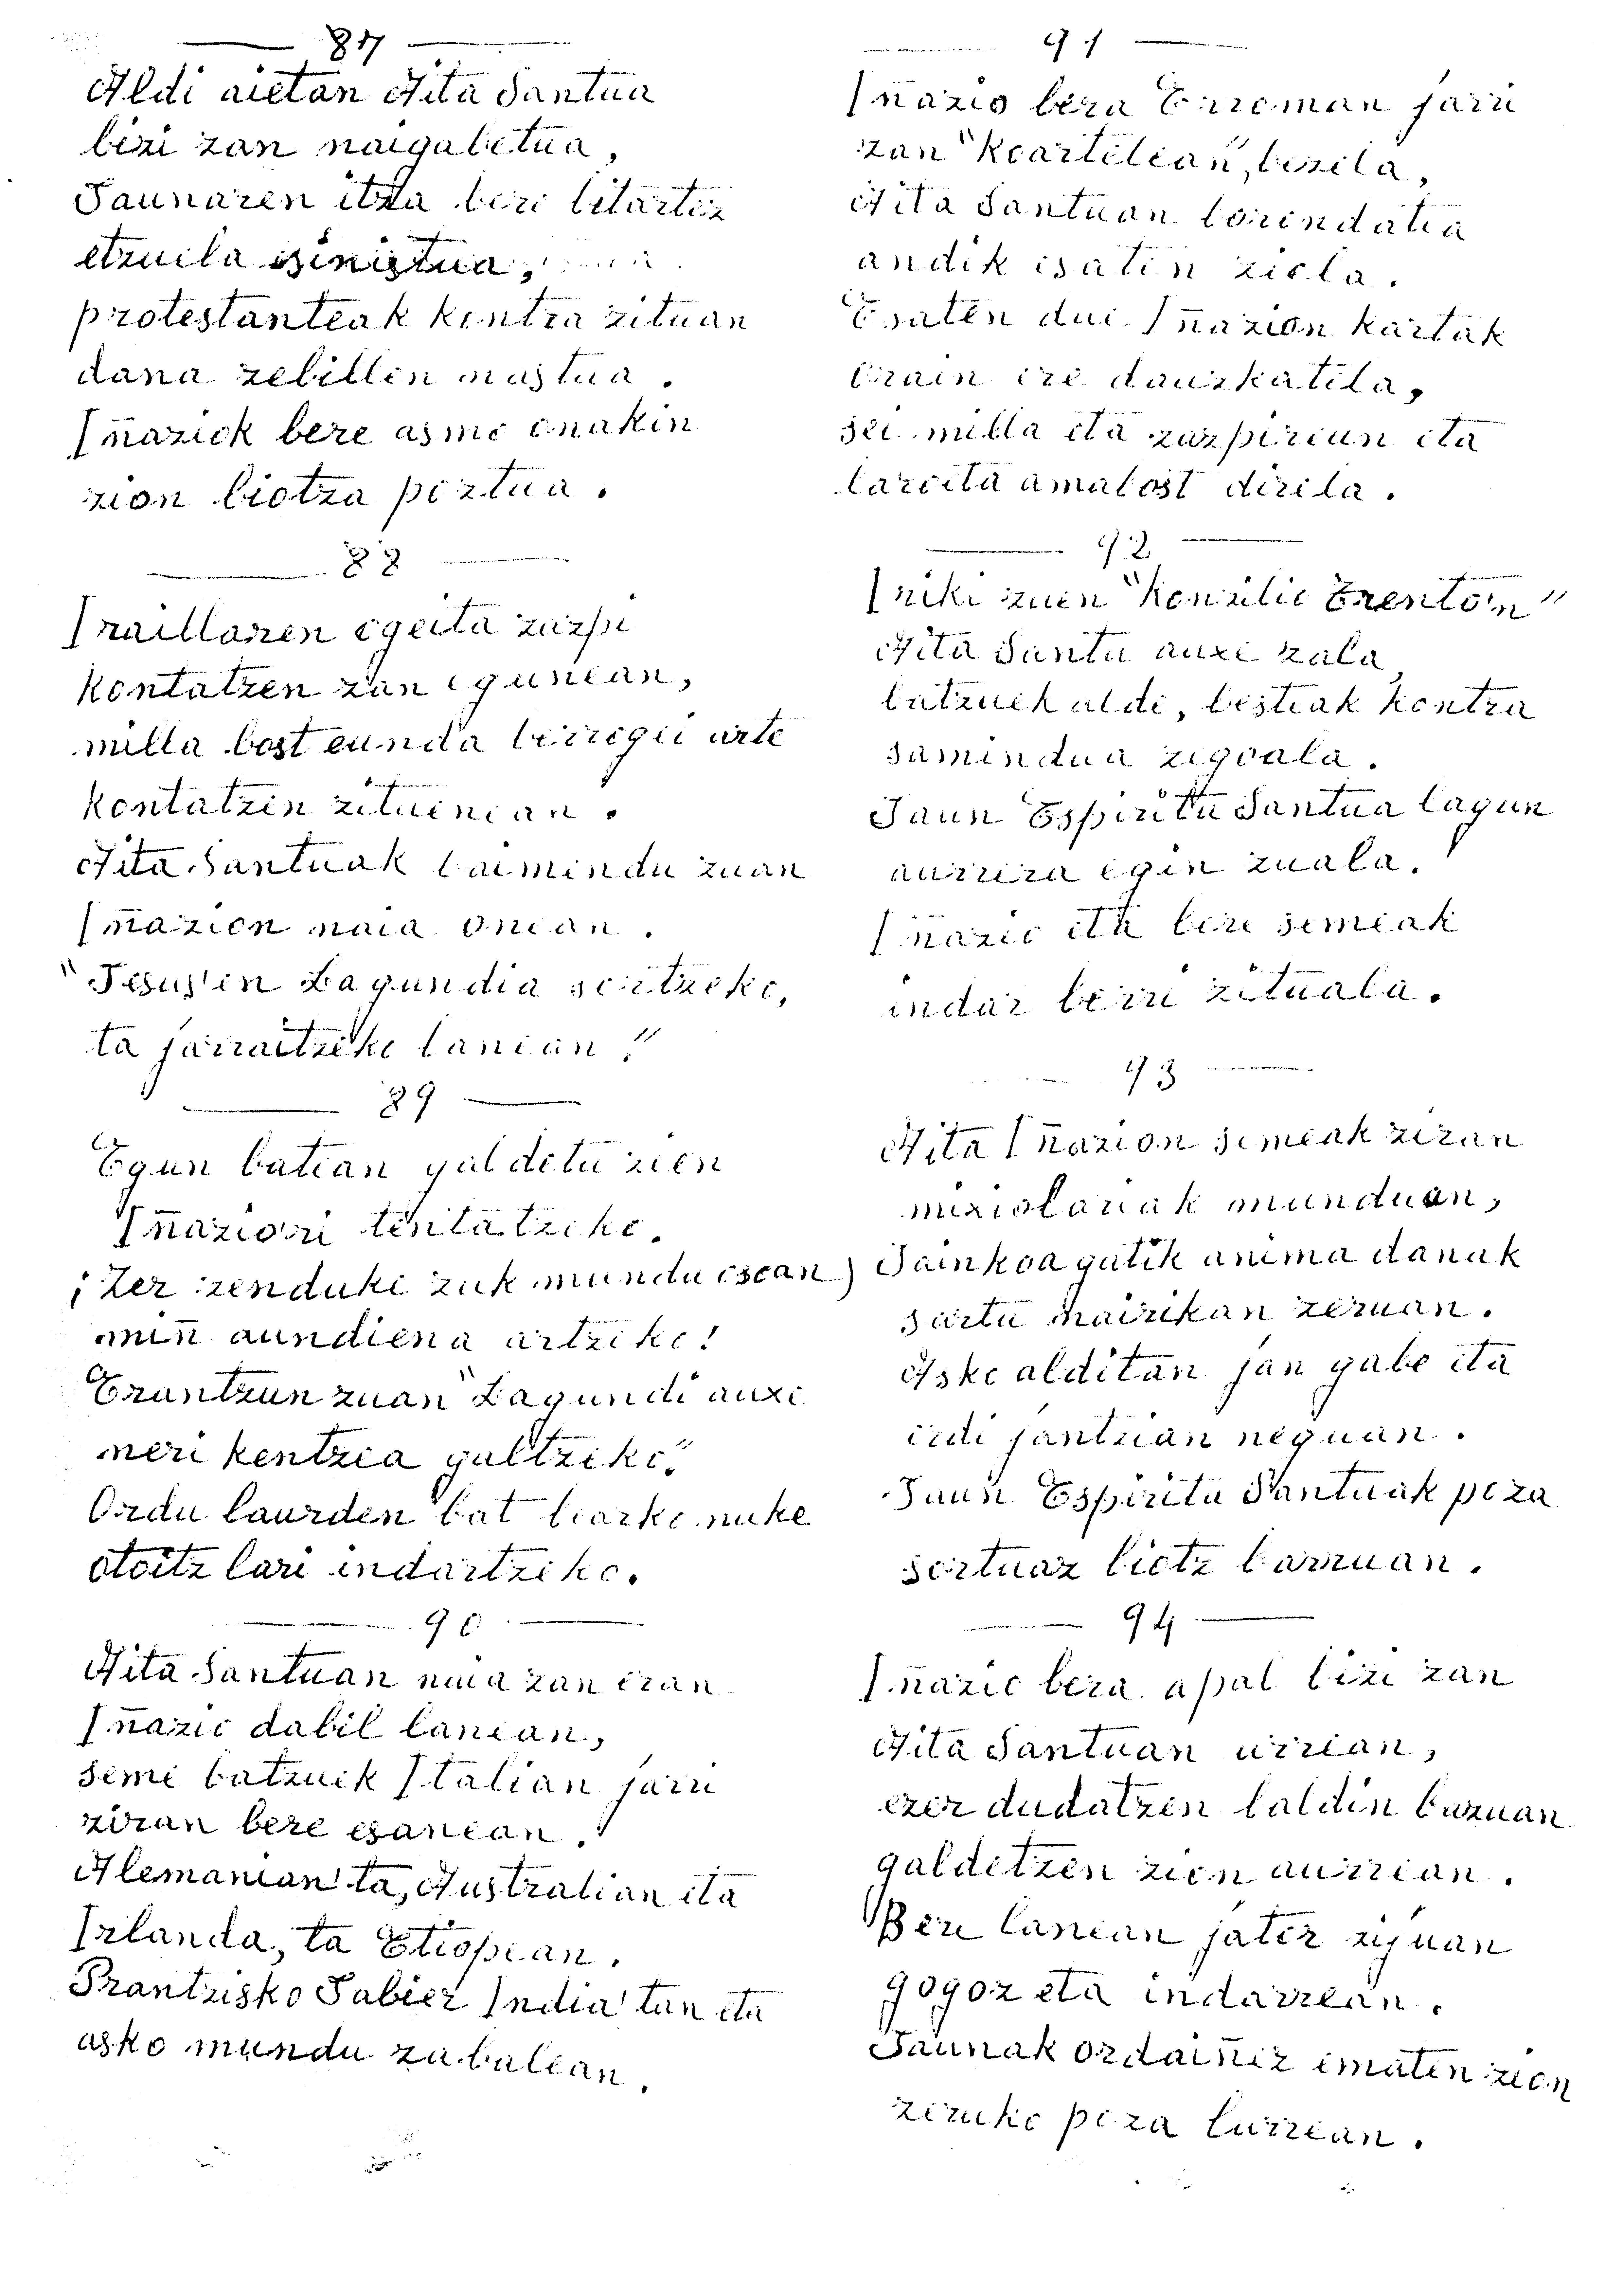 87
Aldi aietan Aita Santua
bizi zan naigabetua,
Jaunaren itza bere bitartez
etzuila sinistua,
protestanteak kontra zituan
dana zebillen nastua.
Iñaziok bere asmo onakin
zion biotza poztua.
88
Iraillaren ogeita zazpi
kontatzen zan egunean,
milla bost eunda berrogei arte
kontatzen zituenean.
Aita Santuak baimendu zuan
Iñazion naia onean.
"Jesus'en Lagundia sortzeko,
ta jarraitzeko lanean"
89
Egun batean galdetu zien
Iñaziori tentatzeko.
¡Zer zenduki zuk mundu osoan
miñ aundiena artzeko!
Erantzun zuan "Lagundi auxe
neri kentzea galtzeko".
Ordu laurden bat bearko nuke
otoitz bari indartzeko.
90
Aita Santuan naia zan eran
Iñazio dabil lanean,
seme batzuek Italian jarri
ziran bere esanean.
Alemanian ta, Australian eta
Irlanda, ta Etiopean.
Prantzisko Jabier India'tan eta
asko mundu zabalean.
91
Iñazio bera Erroman jarri
zan "Koartelean", bezela,
Aita Santuan borondatea
andik esaten ziola.
Esaten due Iñazion kartak
orain ere dauzkatela,
sei milla eta zazpireun eta
laroita amabost direla.
92
Iriki zuen "Konzilio Trento'n"
Aita Santu auxe zala,
batzuek alde, besteak kontra
samindua zegoala.
Jaun Espiritu Santua lagun
aurrera egin zuala.
Iñazio eta bere semeak
indar berri zituala.
93
Aita Iñazion semeak ziran
misiolariak munduan,
Jainkoagatik anima danak
sartu nairikan zeruan.
Asko alditan jan gabe eta
erdi jantzian neguan.
Jaun Espiritu Santuak poza
sortuaz biotz barruan.
94
Iñazio bera apal bizi zan
Aita Santuan urrean,
ezer dudatzen baldin bazuan
galdetzen zion aurrean.
Bere lanean jatez zijuan
gogoz eta indarrean.
Jaunak ordaiñez ematen zion
zeruko poza lurrean.